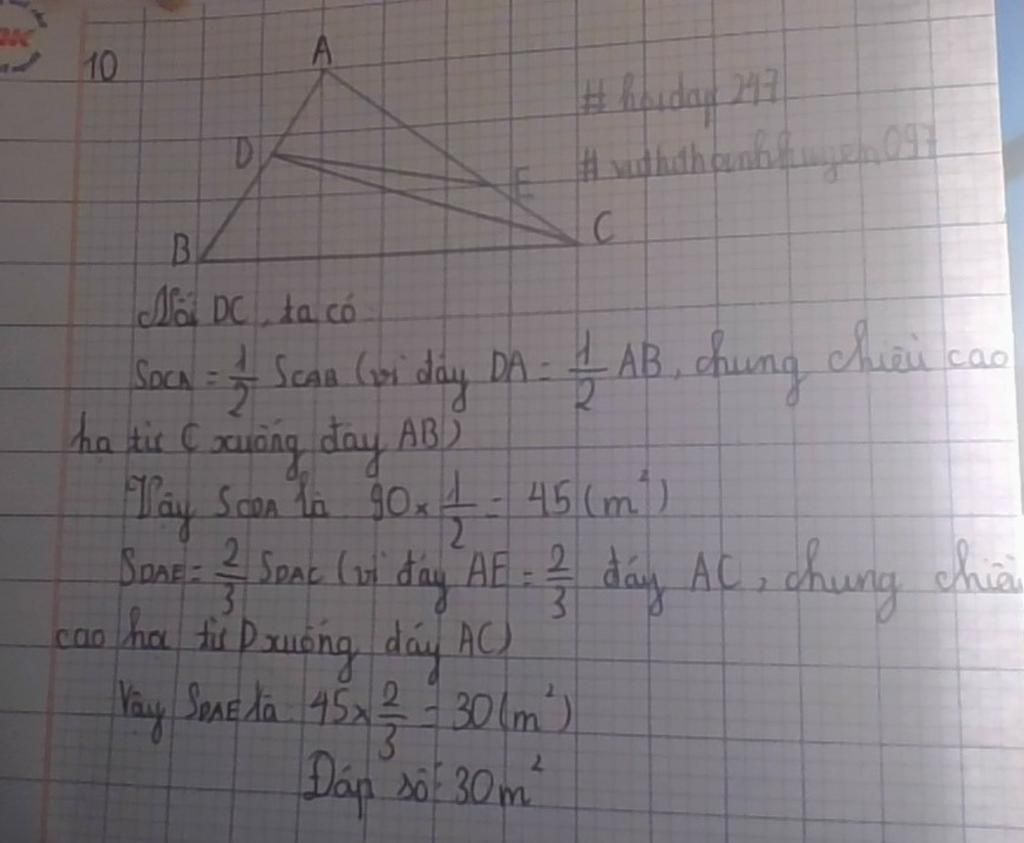 10
A
# hoiday 247
D
E
B
C
Nối DC, ta có
SDCA = 1/2 SCAB (vì đáy DA = 1/2 AB, chung chiều cao
hạ từ C xuống đáy AB)
Vậy SCDA là 90 × 1/2 = 45 (m²)
SDAE = 2/3 SDAC (vì đáy AE = 2/3 đáy AC, chung chiều
cao hạ từ D xuống đáy AC)
Vậy SDAE là 45 × 2/3 = 30 (m²)
Đáp số: 30m²